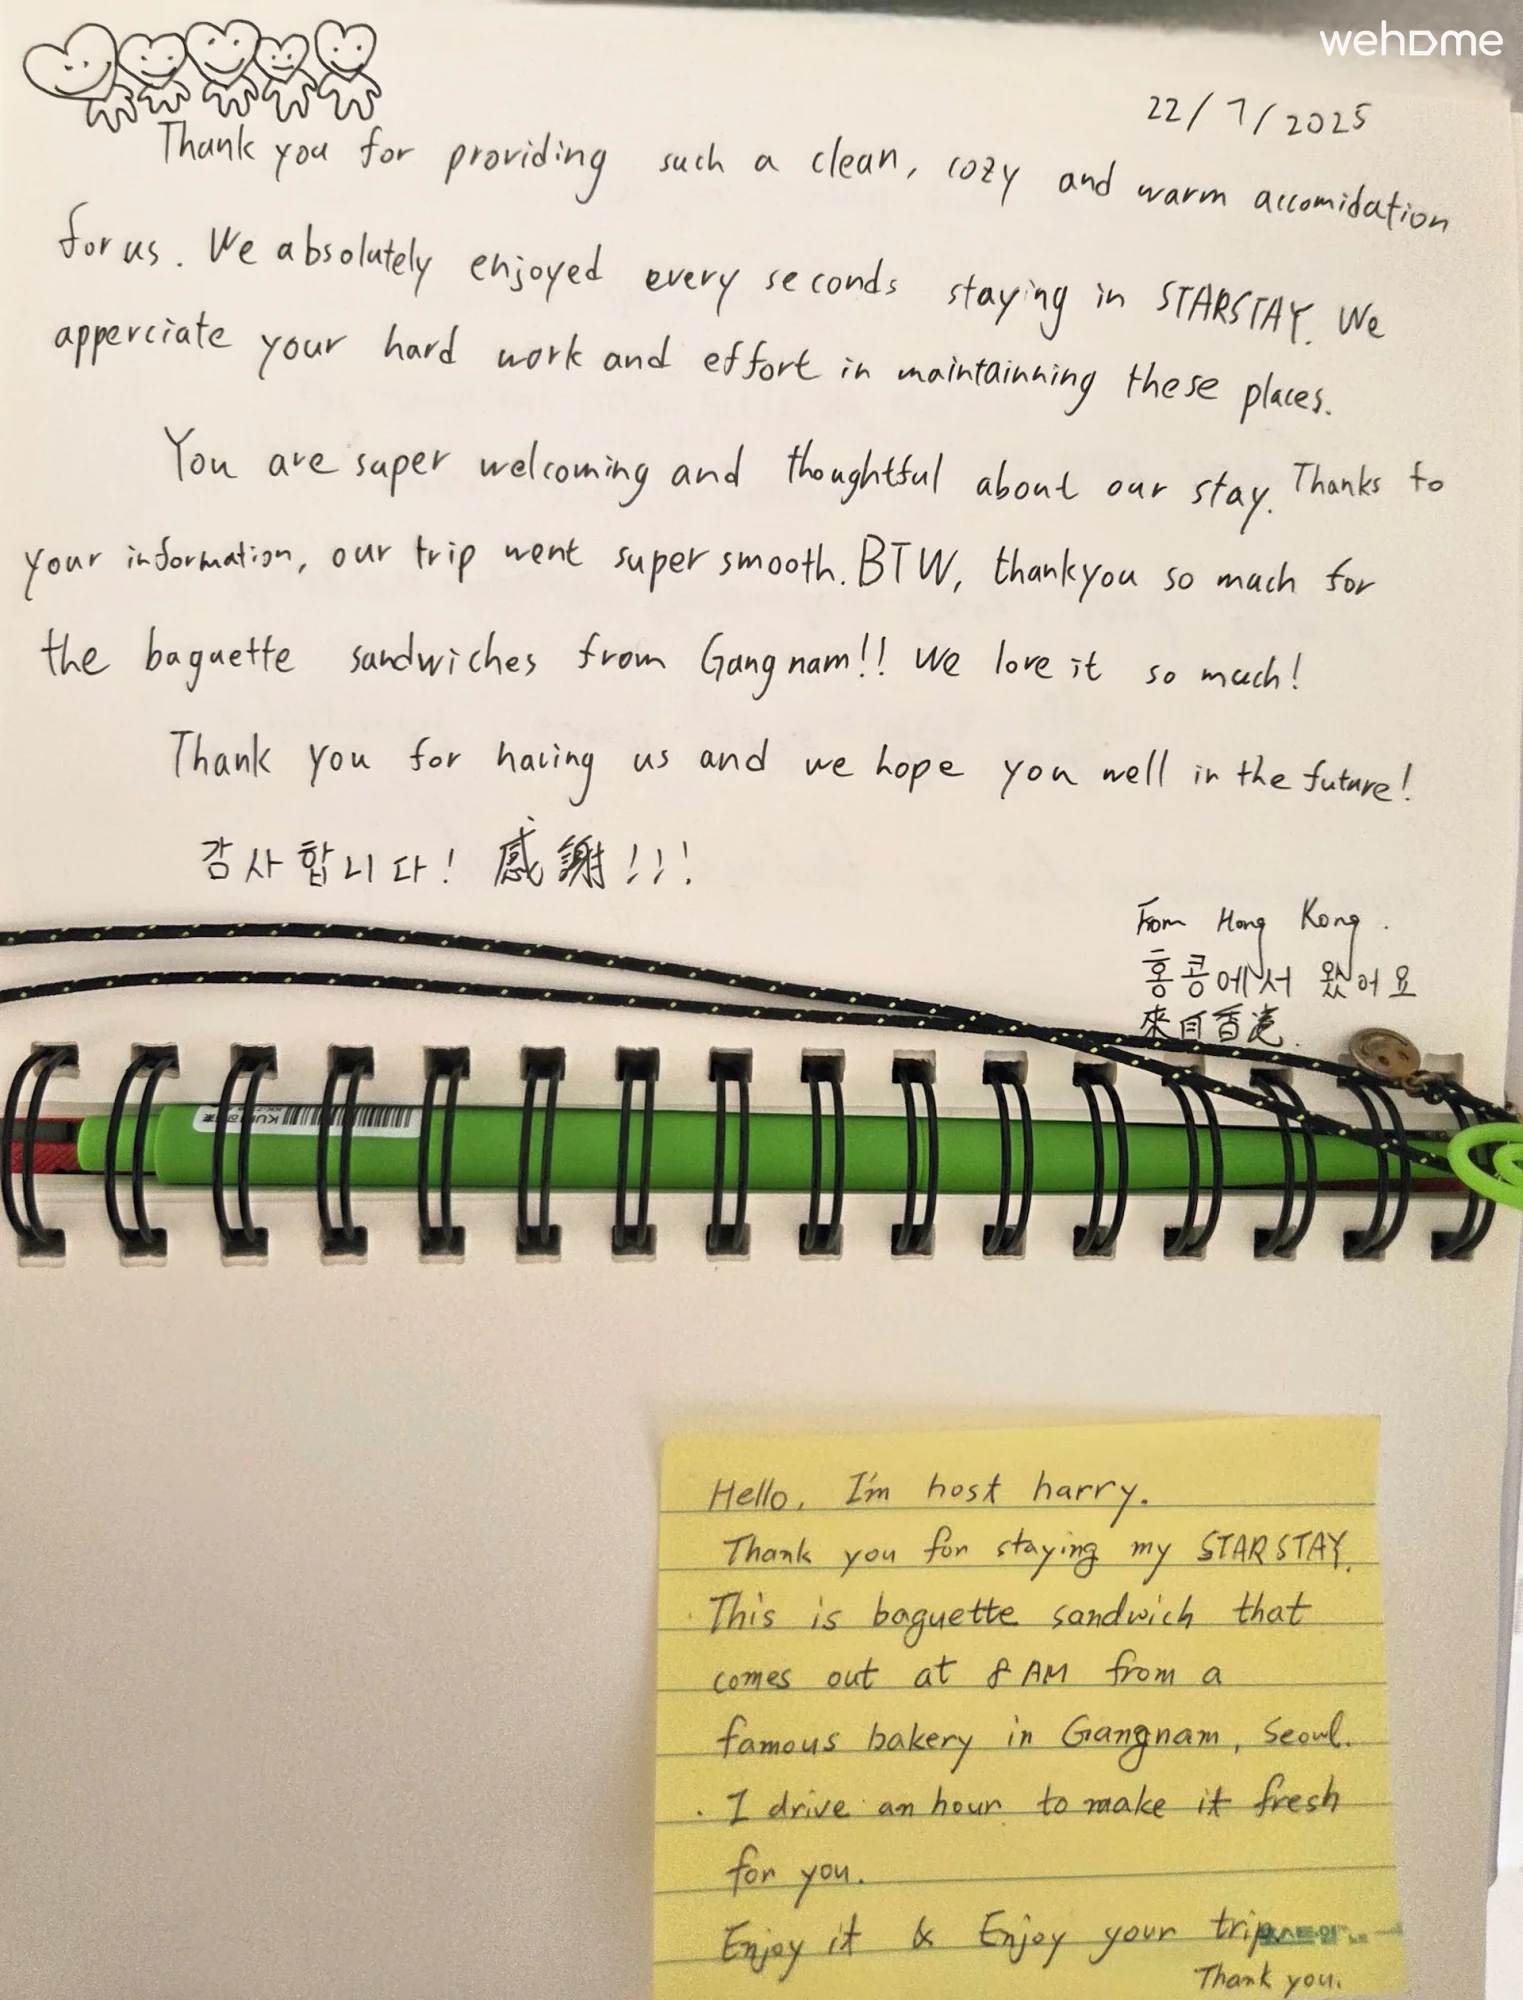 wehome
22/7/2025
Thank you for providing such a clean, cozy and warm accomidation
for us. We absolutely enjoyed every seconds staying in STARSTAY. We
apperciate your hard work and effort in maintainning these places.
You are super welcoming and thoughtful about our stay. Thanks to
your information, our trip went super smooth. BTW, thankyou so much for
the baguette sandwiches from Gangnam!! We love it so much!
Thank you for having us and we hope you well in the future!
감사합니다! 感謝!!!
From Hong Kong.
홍콩에서 왔어요
來自香港.
Hello, I'm host harry.
Thank you for staying my STARSTAY.
This is baguette sandwich that
comes out at 8 AM from a
famous bakery in Gangnam, Seoul.
I drive an hour to make it fresh
for you.
Enjoy it & Enjoy your trip
Thank you.